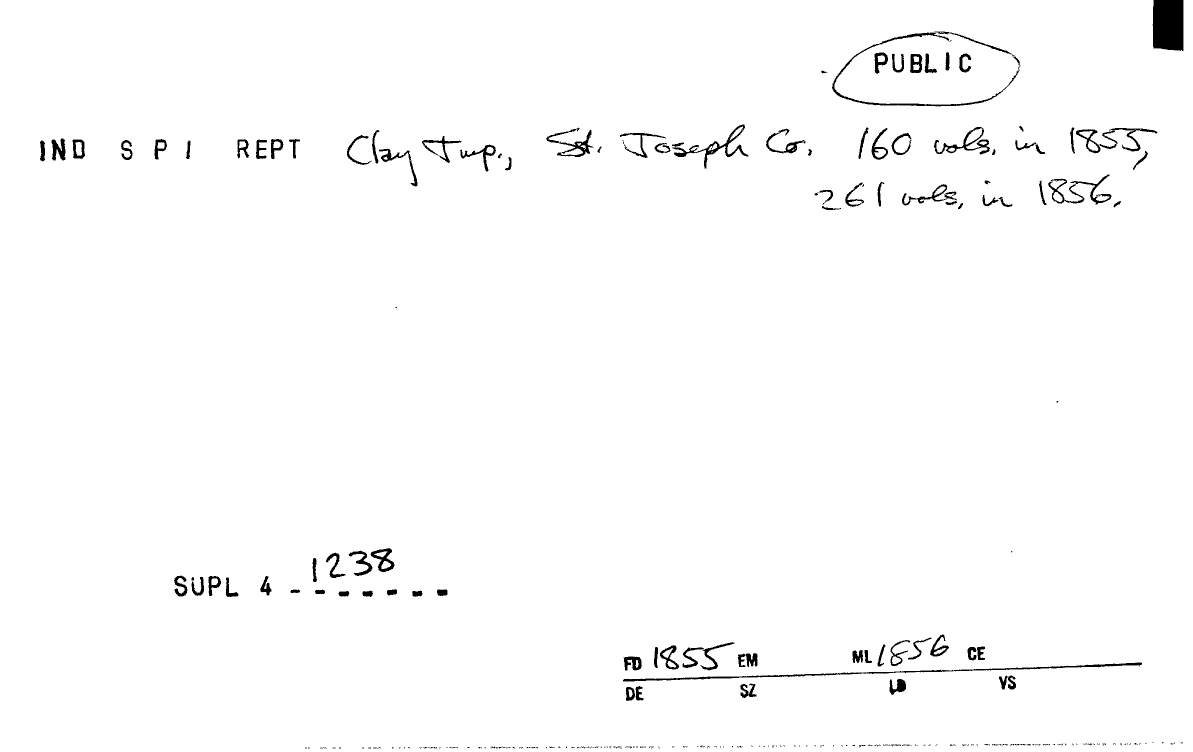 PUBLIC
IND S P I REPT Clay Twp., St. Joseph Co. 160 vols. in 1855,
261 vols. in 1856.
1238
SUPL 4 - - - - - - -
FD 1855 EM ML 1856 CE
DE SZ LD VS